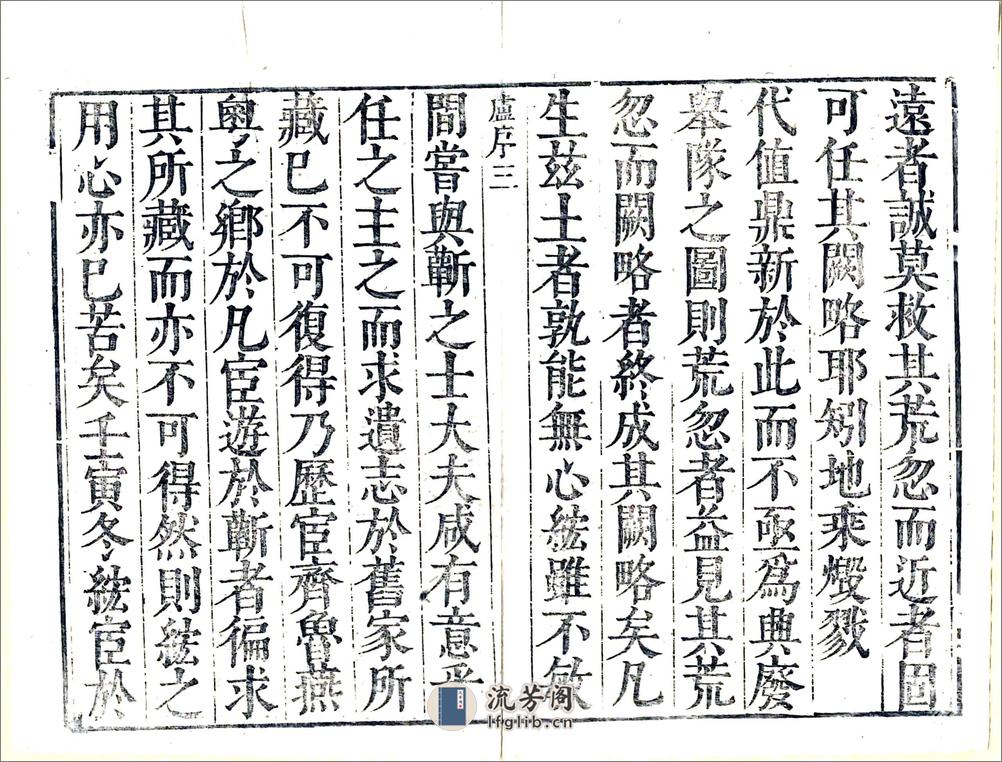 遠者誠莫救其荒忽而近者固
可任其闕略耶矧地乘燬戮
代值鼎新於此而不亟為典廢
舉隊之圖則荒忽者益見其荒
忽而闕略者終成其闕略矣凡
生茲土者孰能無心綋雖不敏
盧序三
間嘗與蘄之士大夫咸有意乎
任之主之而求遺志於舊家所
藏已不可復得乃歷宦齊魯燕
粵之鄉於凡宦遊於蘄者徧求
其所藏而亦不可得然則綋之
用心亦已苦矣壬寅冬綋宦於
流芳阁
lfglib.cn